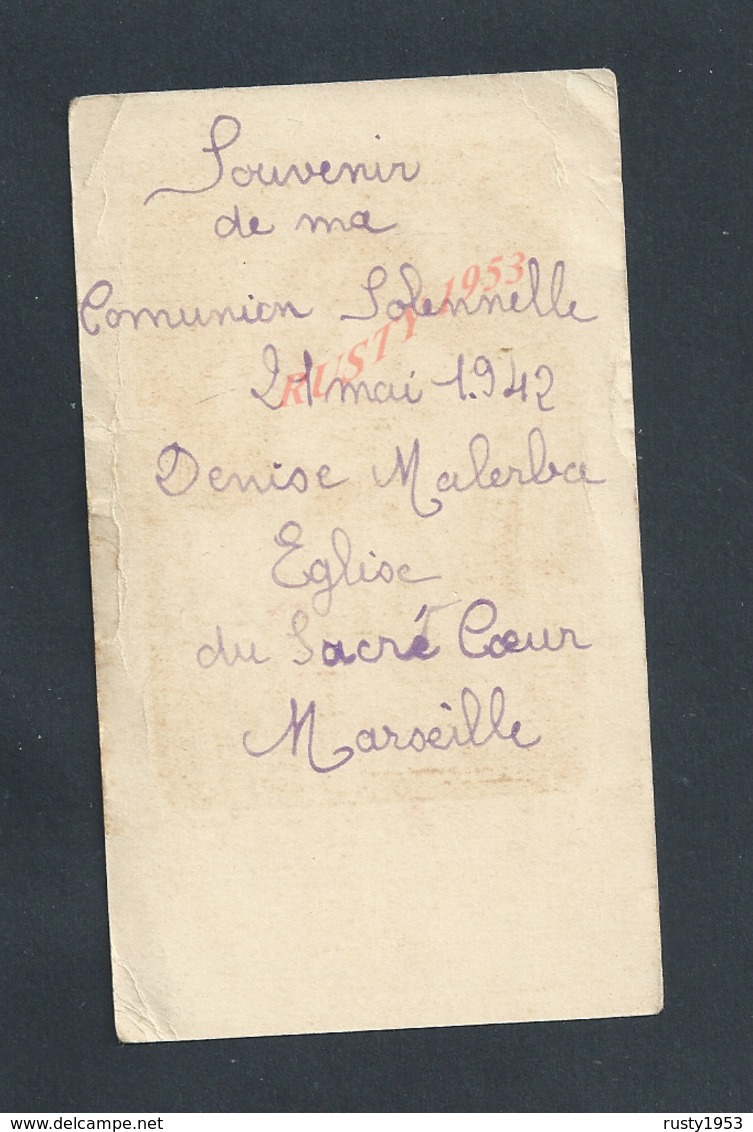 Souvenir
de ma
Comunion Solennelle
21 mai 1.942
Denise Malerba
Eglise
du Sacré Cœur
Marseille
RUSTY 1953
www.delcampe.net
rusty1953